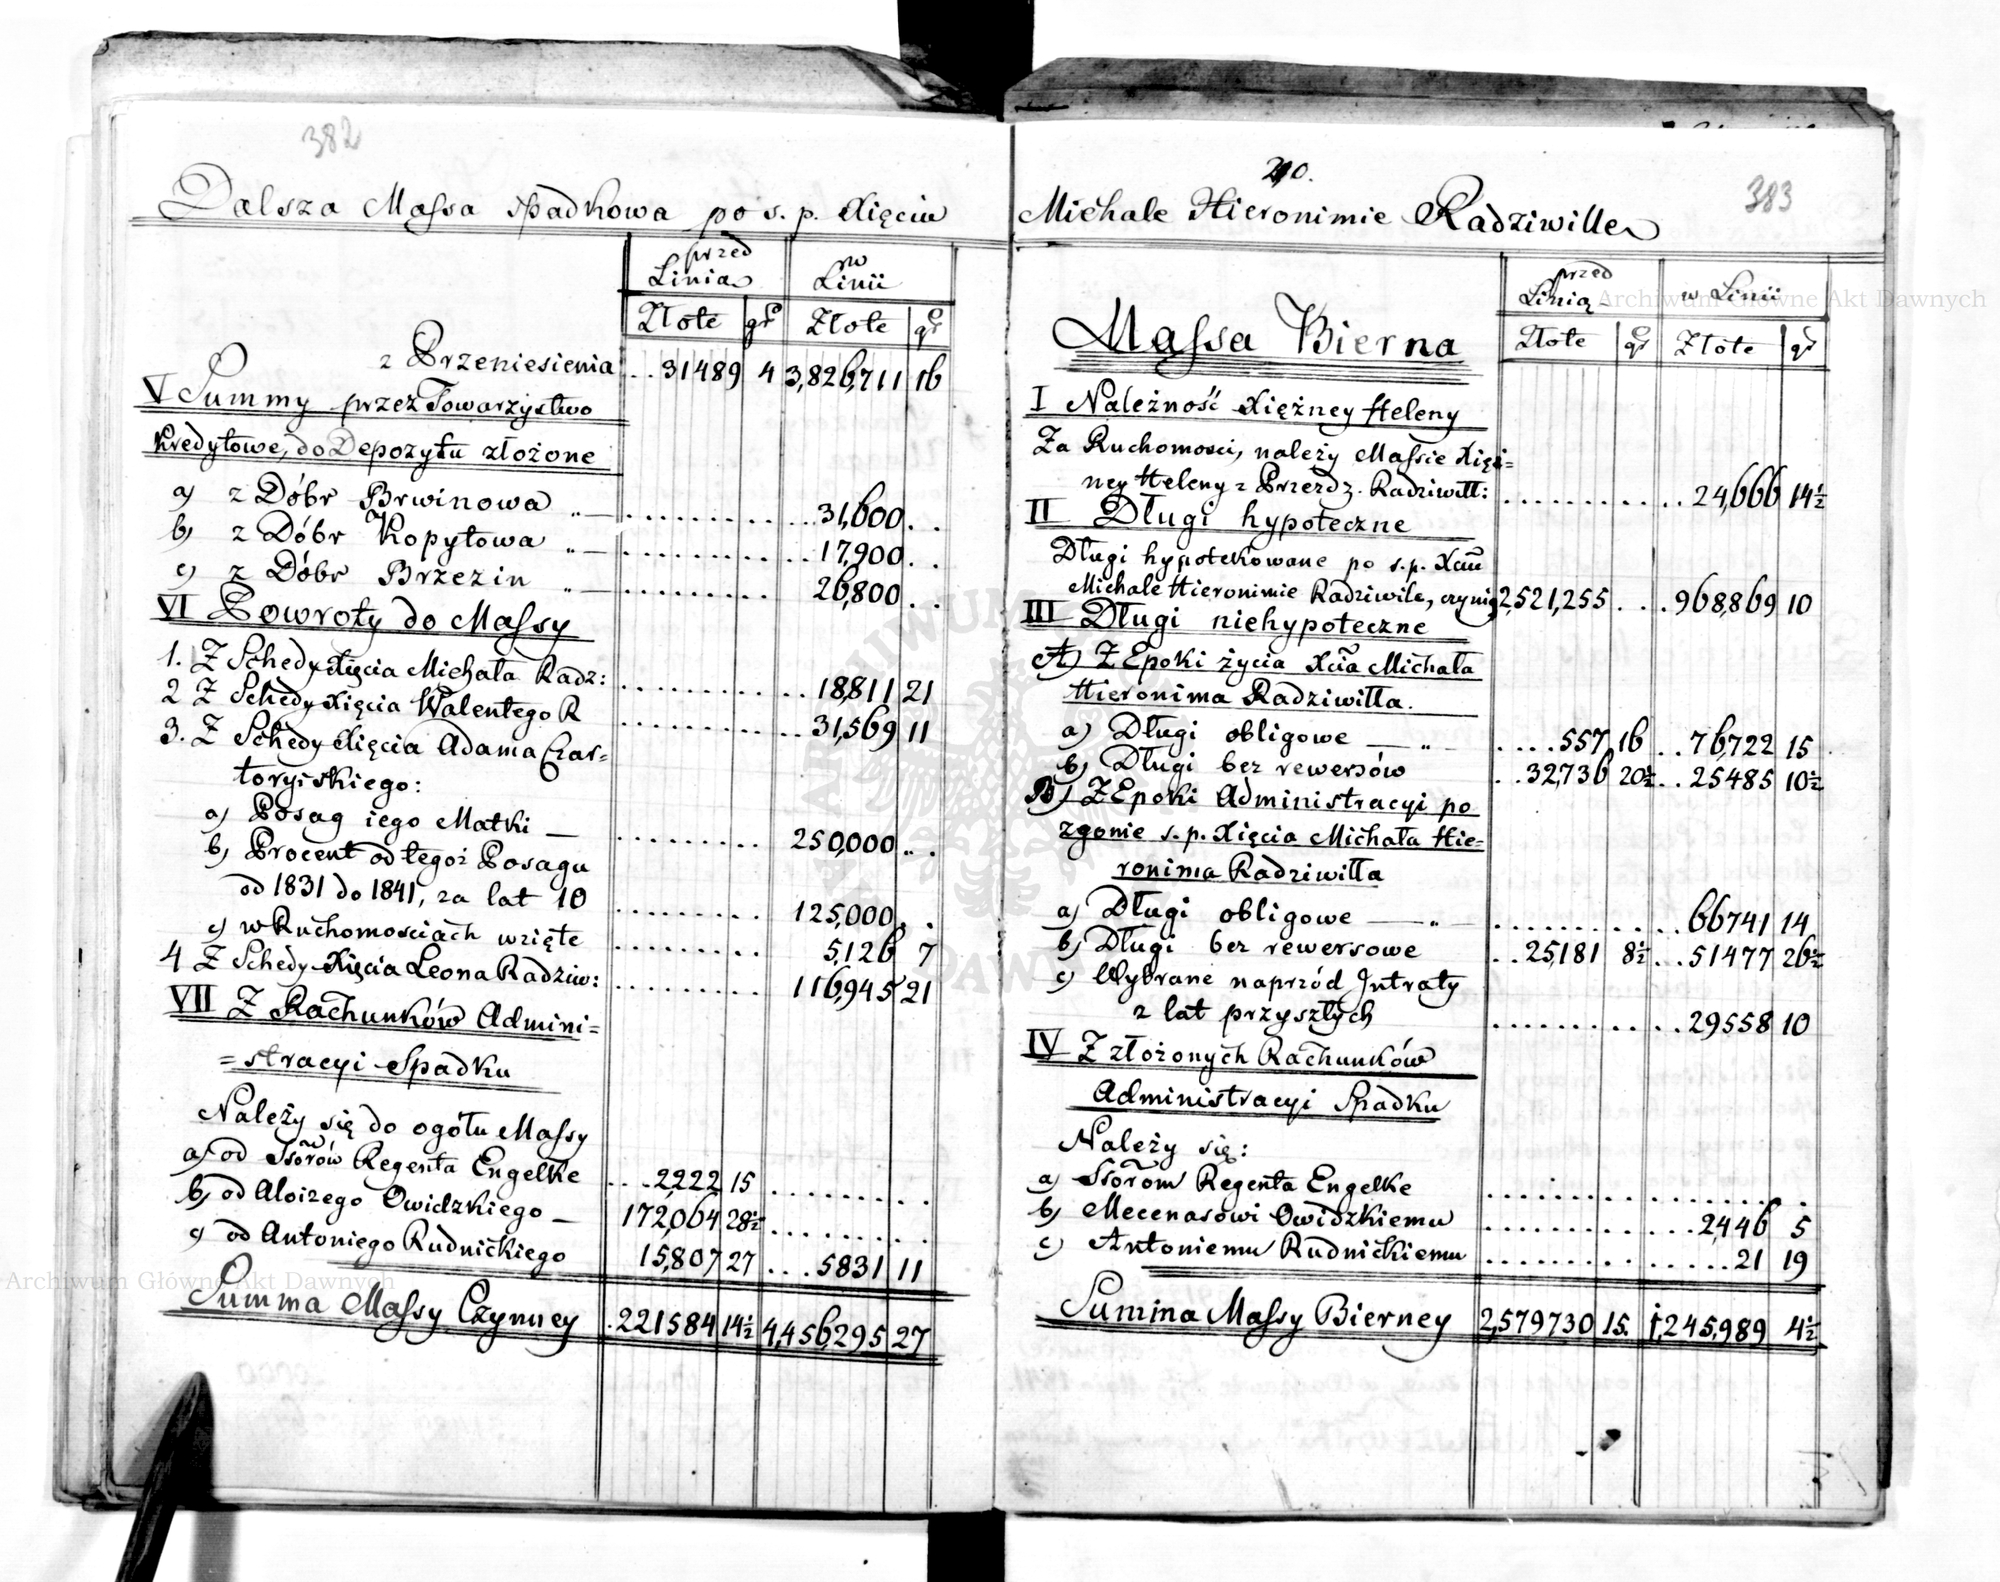 382
Dalsza Massa spadkowa po s. p. Xięciu
przed Linią
w Linii
Złote gr Złote gr
z Przeniesienia . . 31489 4 3,826,711 16
V Summy przez Towarzystwo
Kredytowe, do Depozytu złożone
a) z Dóbr Brwinowa „ — 31,600 . .
b) z Dóbr Kopytowa „ — 17,900 . .
c) z Dóbr Brzezin „ — 26,800 . .
VI Powroty do Massy
1. Z Schedy Xięcia Michała Radz: 18,811 21
2 Z Schedy Xięcia Walentego R 31,569 11
3. Z Schedy Xięcia Adama Czar=
toryiskiego:
a) Posag iego Matki — 250,000 . .
b) Procent od tegoż Posagu
od 1831 do 1841, za lat 10 125,000 . .
c) w Ruchomosciach wzięte 5,126 7
4 Z Schedy Xięcia Leona Radziw: 116,945 21
VII Z Rachunków Admini=
=stracyi Spadku
Należy się do ogółu Massy
a) od Ssorów Regenta Engelke 2222 15
b) od Aloizego Owidzkiego — 172,064 28½
c) od Antoniego Rudnickiego 15,807 27 5831 11
Summa Massy Czynney 221584 14½ 4,456,295 27
210.
383
Michale Hieronimie Radziwille
przed Linią
w Linii
Złote gr Złote gr
Massa Bierna
I Należność Xiężney Heleny
Za Ruchomosci, należy Massie Xięż=
ney Heleny z Przezdz. Radziwiłł: 24,666 14½
II Długi hypoteczne
Długi hypotekowane po s. p. Xciu
Michale Hieronimie Radziwile, czynią 2,521,255 . . . 968,869 10
III Długi niehypoteczne
A) Z Epoki życia Xcia Michała
Hieronima Radziwiłła.
a) Długi obligowe — „ — 557 16 76,722 15
b) Długi bez rewersów 32,736 20½ 25485 10½
B) Z Epoki Administracyi po
zgonie s. p. Xięcia Michała Hie=
ronima Radziwiłła
a) Długi obligowe — „ 66741 14
b) Długi bez rewersowe 25,181 8½ 51477 26½
c) Wybrane naprzód Intraty
z lat przyszłych 29558 10
IV Z złożonych Rachunków
Administracyi Spadku
Należy się:
a) Ssorom Regenta Engelke
b) Mecenasowi Owidzkiemu 2,446 5
c) Antoniemu Rudnickiemu 21 19
Summa Massy Bierney 2,579730 15. 1,245,989 4½
Archiwum Główne Akt Dawnych
Archiwum Główne Akt Dawnych